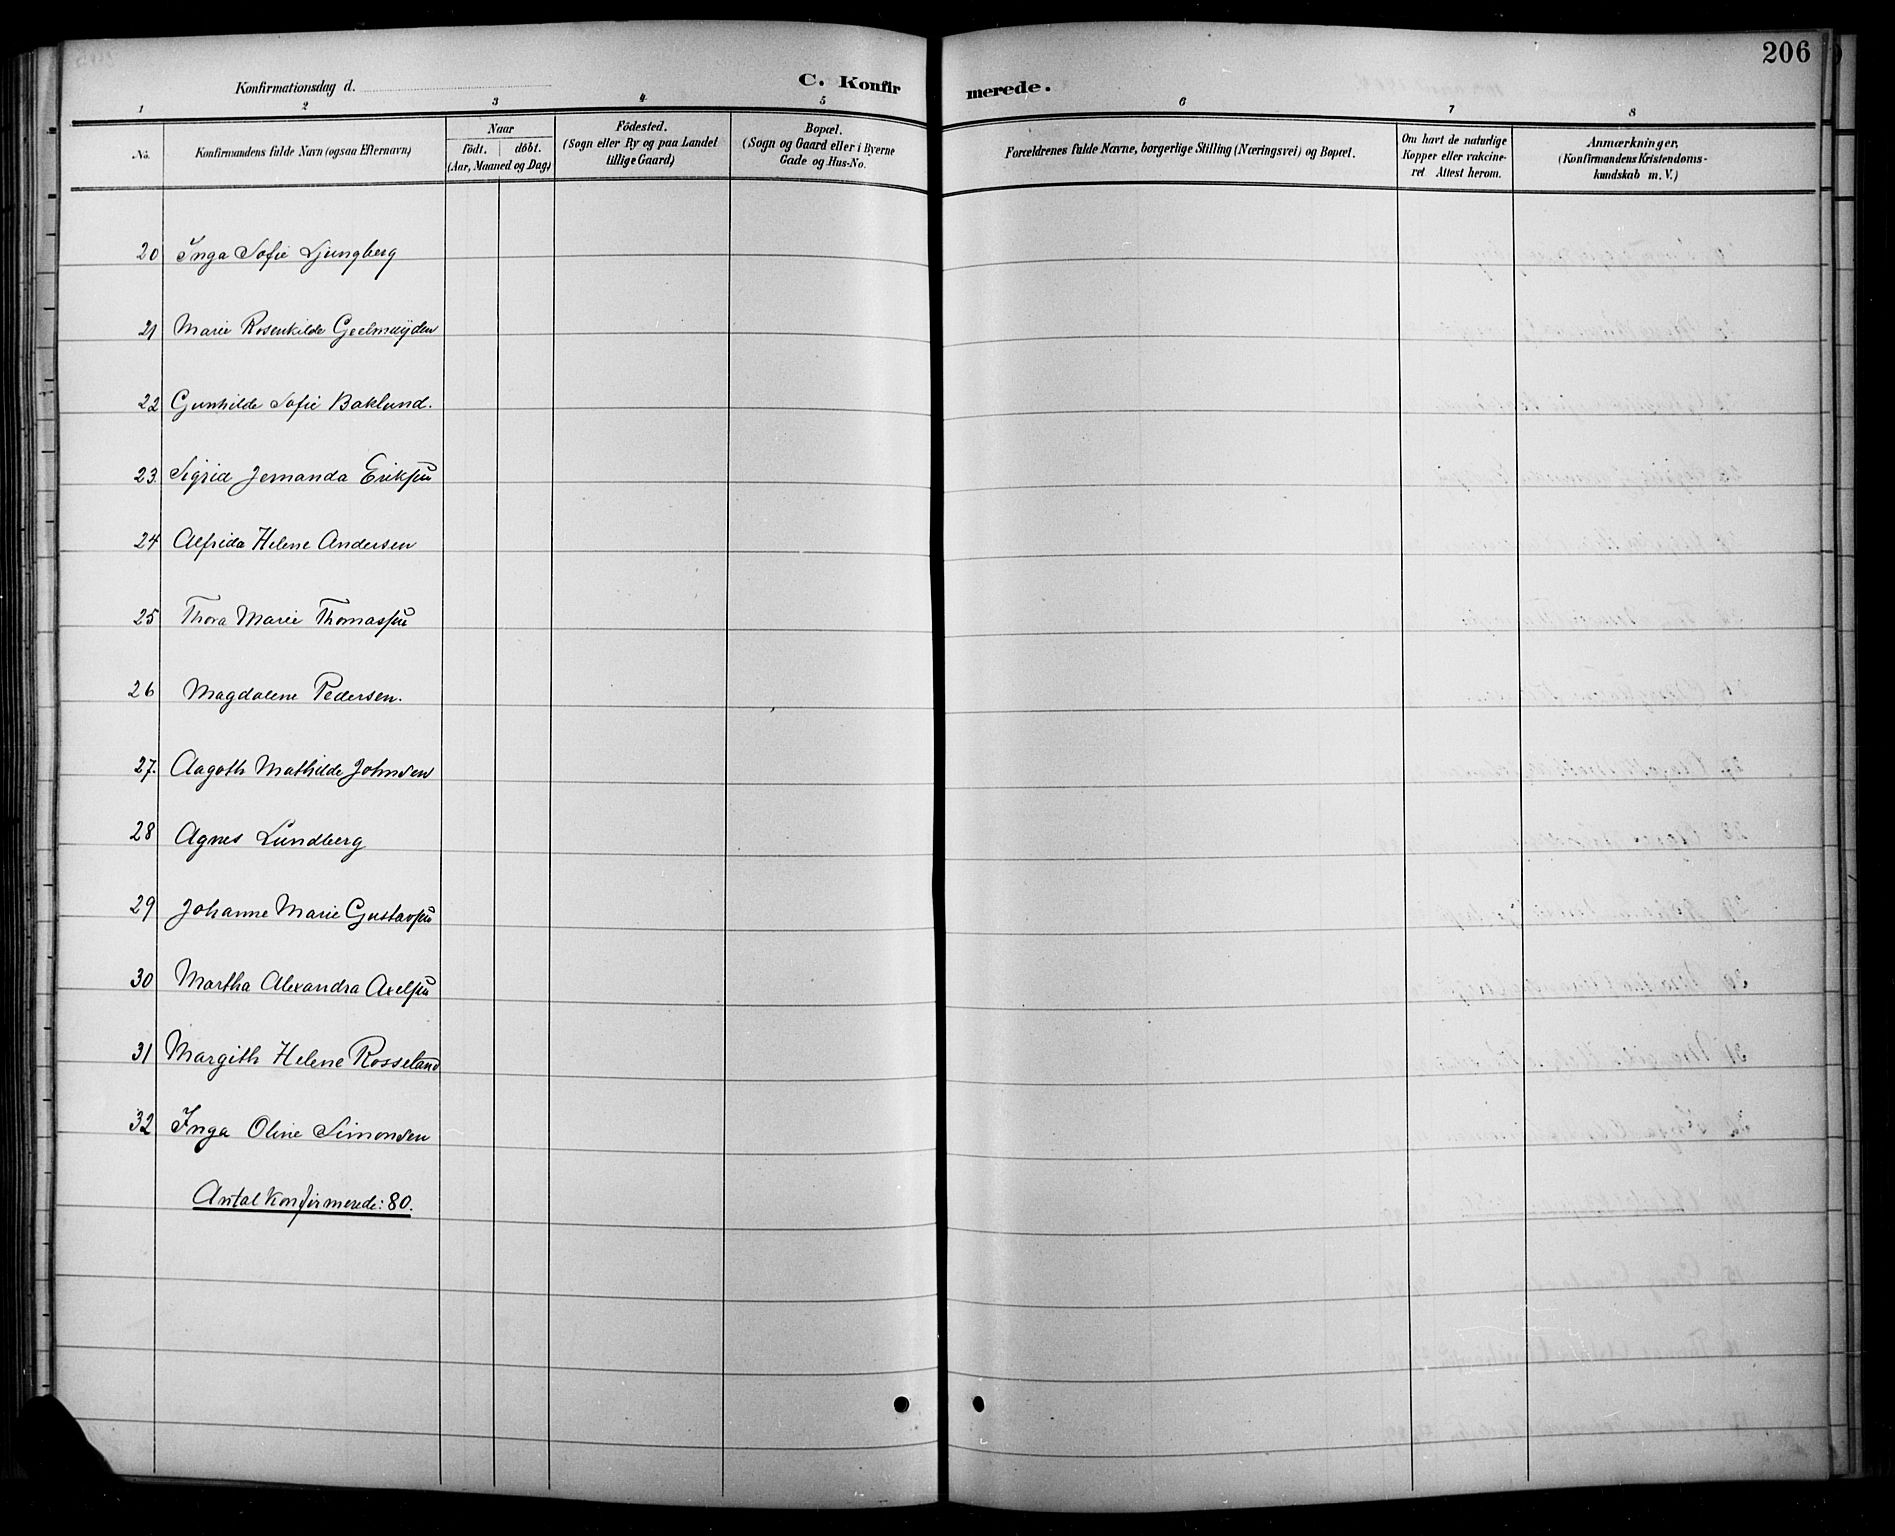 206
Konfirmationsdag d.
C. Konfirmerede.
1 2 3 4 5 6 7 8
No.
Konfirmandens fulde Navn (ogsaa Efternavn)
Naar
födt. döbt.
(Aar, Maaned og Dag)
Födested.
(Sogn eller By og paa Landet
tillige Gaard)
Bopæl.
(Sogn og Gaard eller i Byerne
Gade og Hus-No.
Forældrenes fulde Navne, borgerlige Stilling (Næringsvei) og Bopæl.
Om havt de naturlige
Kopper eller vakcine-
ret Attest herom.
Anmærkninger,
(Konfirmandens Kristendoms-
kundskab m. V.)
20 Inga Sofie Ljungberg
21 Marie Rosenkilde Geelmuÿden
22 Gunhilde Sofie Baklund.
23. Sigrid Jemanda Eriksen
24 Alfrida Helene Andersen
25 Thora Marie Thomassen
26 Magdalene Pedersen.
27. Aagoth Mathilde Johnsen
28 Agnes Lundberg
29 Johanne Marie Gustavsen
30 Martha Alexandra Axelsen
31 Margith Helene Rosseland
32 Inga Oline Simonsen
Antal Konfirmerede: 80.